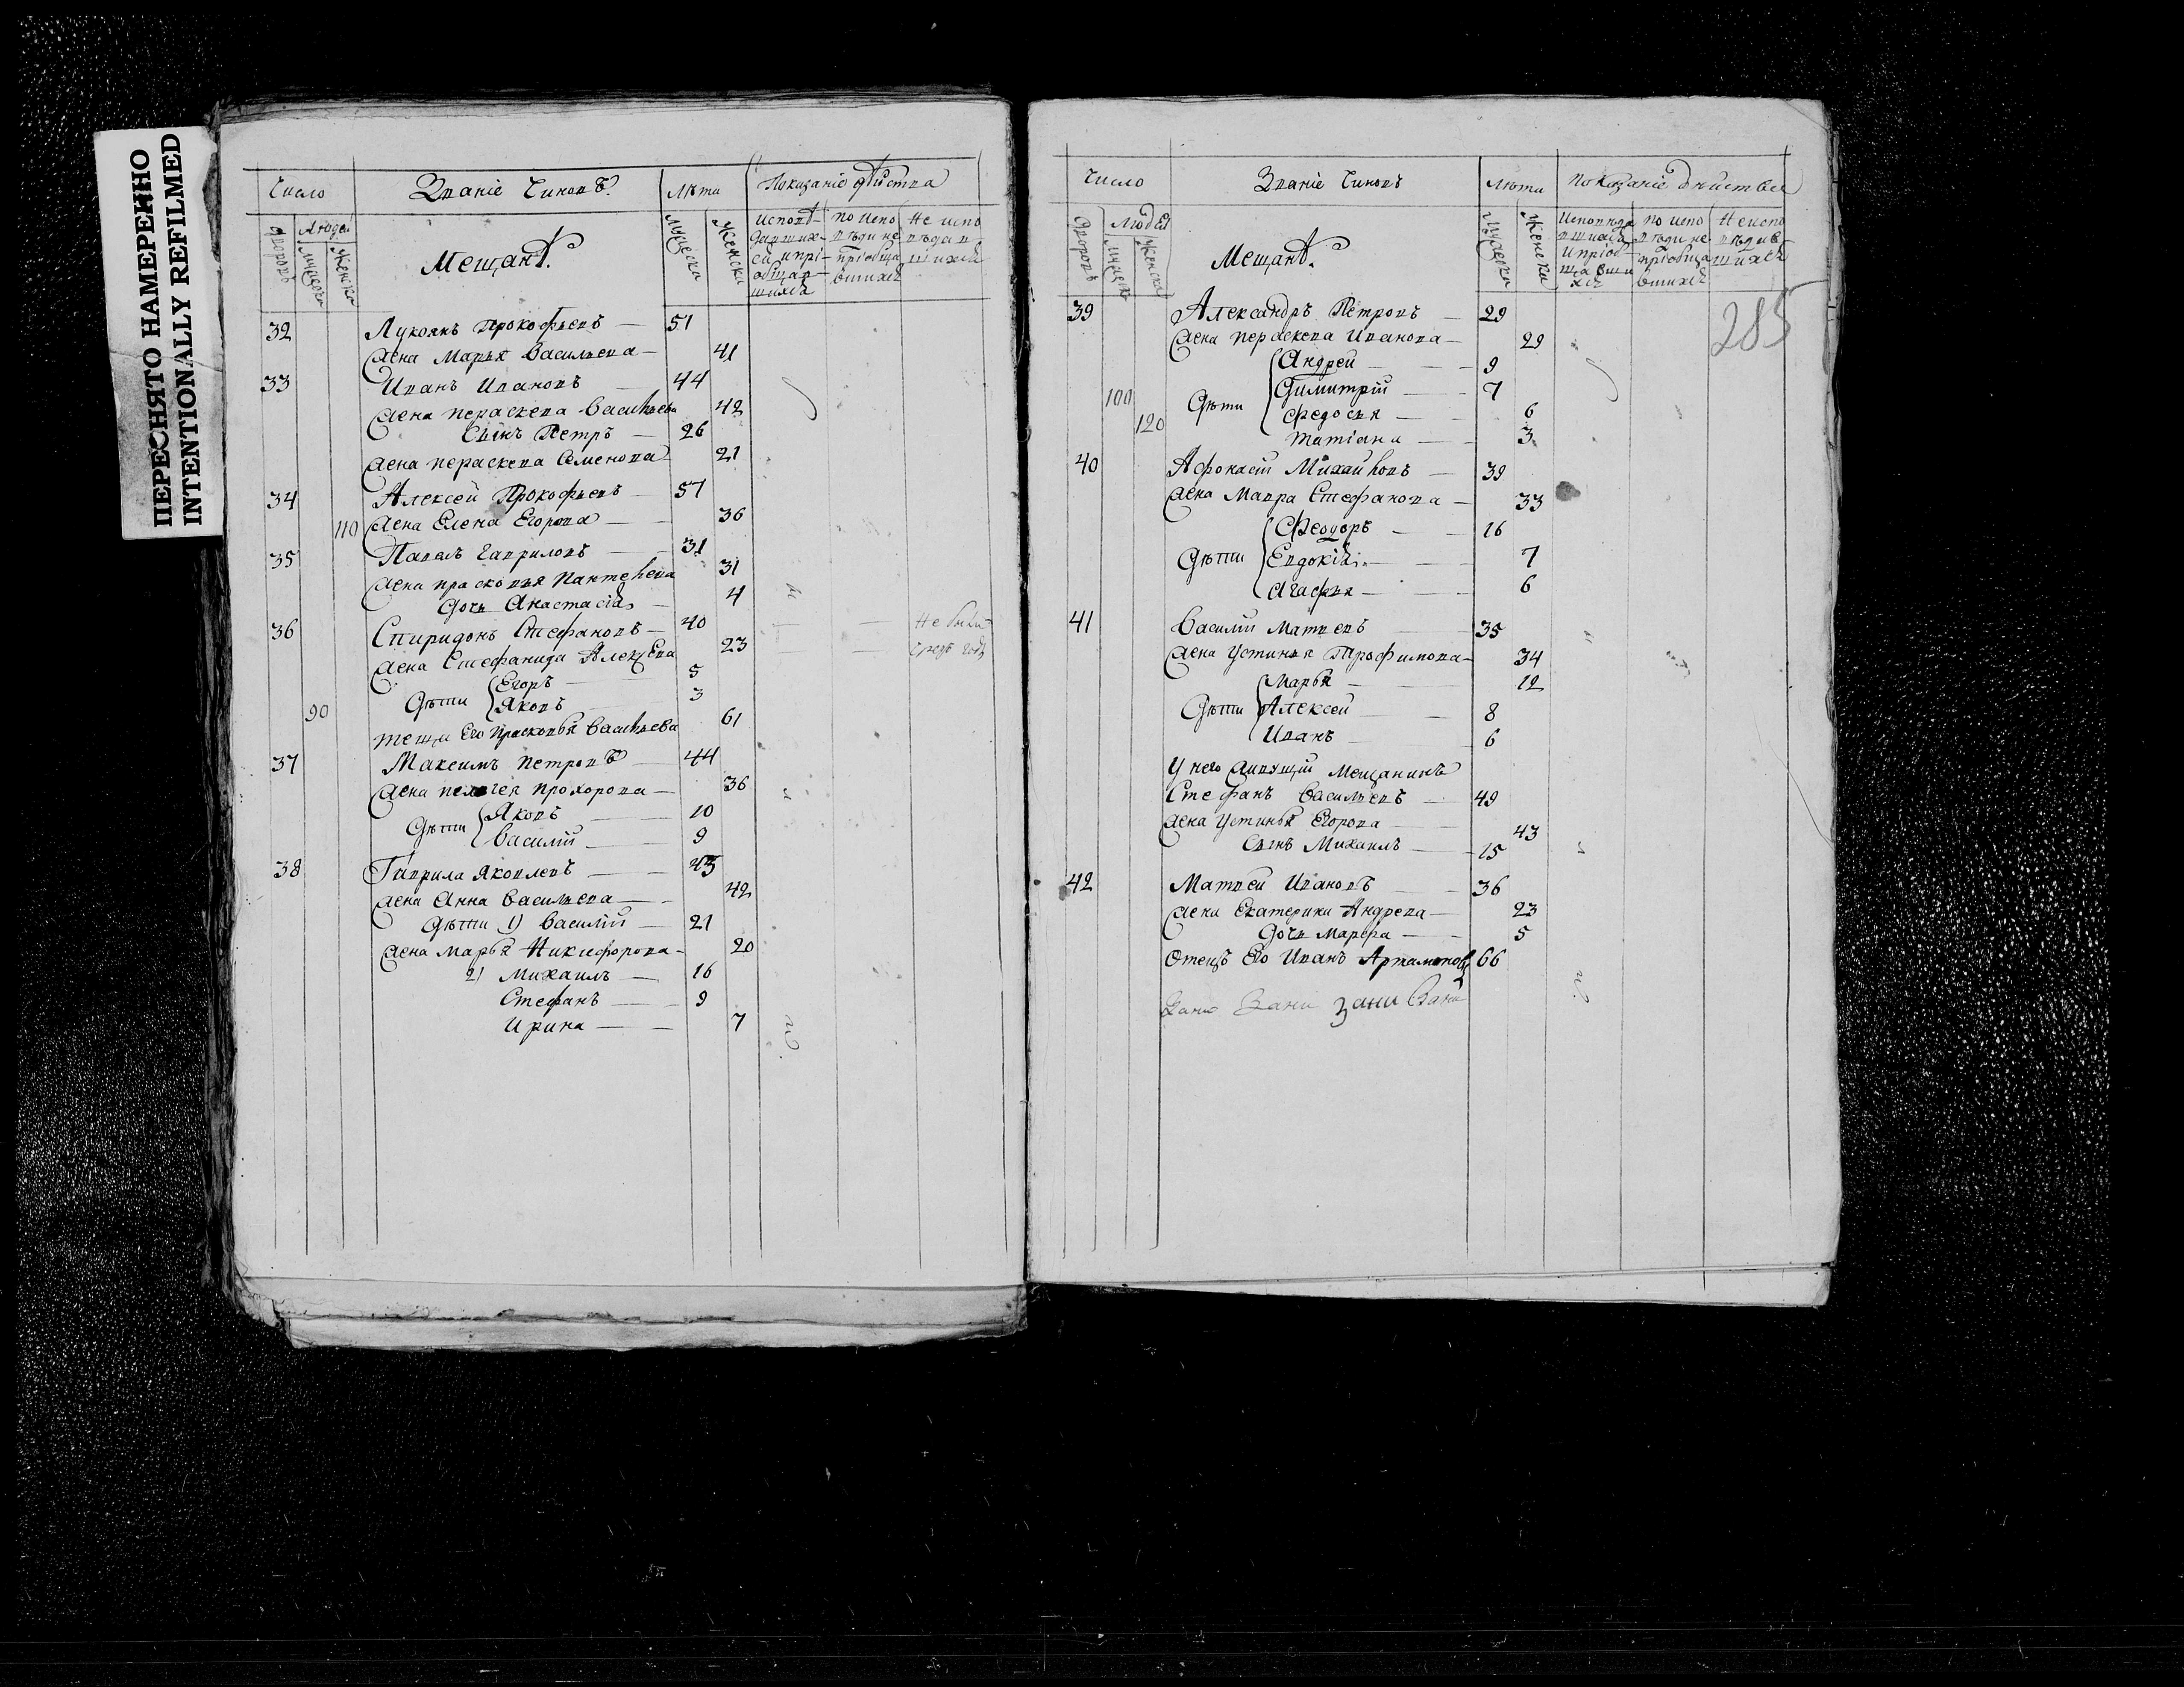 ПЕРЕСНЯТО НАМЕРЕННО
INTENTIONALLY REFILMED
Число Званіе Чиновъ Лѣта Показаніе дѣйства
дворовъ Людей Мужеска Женска Мещанѣ. Мужеска Женска
исповѣдавшихся и пріобщавшихся
по исповѣди не пріобщавшихся
не исповѣдавшихся
32 Лукоянъ Прокофьевъ — 51
жена Марья Васильева — 41
33 Иванъ Ивановъ — 44
жена пераскева Васильева 42
Сынъ Петръ — 26
жена пераскева Семенова 21
34 Алексей Прокофьевъ — 57
110 жена Елена Егорова — 36
35 Павелъ Гавриловъ — 31
жена прасковья Пантелева 31
дочь Анастасія — 4
36 Спиридонъ Стефановъ — 40 — Не были
жена Стефанида Алексѣева 23 — сего года
Егоръ — 5
90 дѣти Яковъ — 3
теща Его Прасковья Васильева 61
37 Максимъ Петровъ — 44
жена пелагея прохорова — 36
дѣти Яковъ — 10
Василій — 9
38 Гаврила Яковлевъ — 43
жена Анна Васильева — 42
дѣти 1) Василій — 21
жена Марья Никифорова — 20
2) Михаилъ — 16
Стефанъ — 9
Ирина — 7
Число Званіе Чиновъ Лѣта Показаніе дѣйства
дворовъ Людей Мужеска Женска Мещанѣ. Мужеска Женска
Исповѣдавшихся и пріобщавшихся
по исповѣди не пріобщавшихся
Не исповѣдавшихся
285
39 Александръ Петровъ — 29
жена пераскева Иванова — 29
Андрей — 9
100 дѣти Димитрій — 7
120 Федосья — 6
татіана — 3
40 Афонасій Михайловъ — 39
жена Мавра Стефанова — 33
Феодоръ — 16
дѣти Евдокія — 7
Агафья — 6
41 Василій Матвевъ — 35
жена Устинья Трофимова — 34
Марья — 12
дѣти Алексей — 8
Иванъ — 6
У него живущій Мещанинъ
Стефанъ Васильевъ — 49
жена Устинья Егорова — 43
Сынъ Михаилъ — 15
42 Матвей Ивановъ — 36
жена Екатерина Андрева — 23
дочь Марфа — 5
Отецъ Его Иванъ Артамоновъ 66
Зани Зани